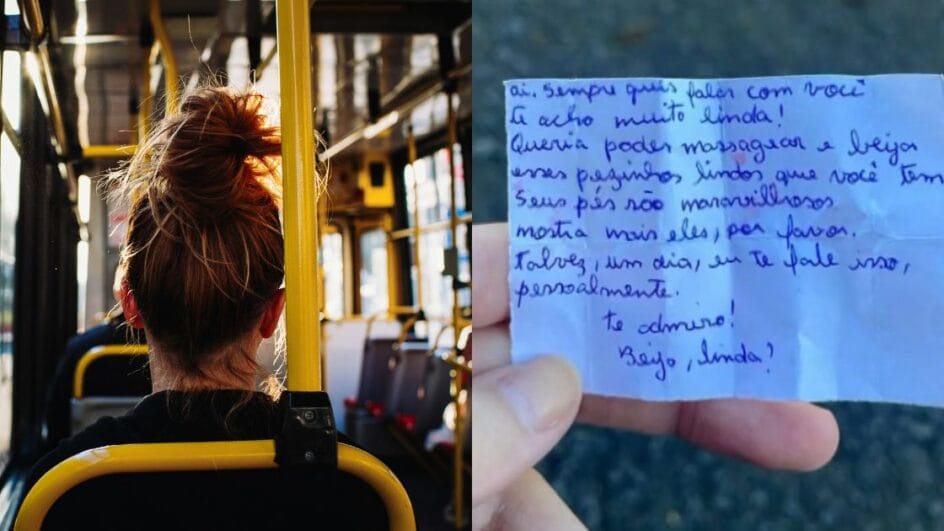 oi, sempre quis falar com você
te acho muito linda!
Queria poder massagear e beijar
esses pezinhos lindos que você tem
Seus pés são maravilhosos
mostra mais eles, por favor.
Talvez, um dia, eu te fale isso,
pessoalmente.
te admiro!
Beijo, linda!